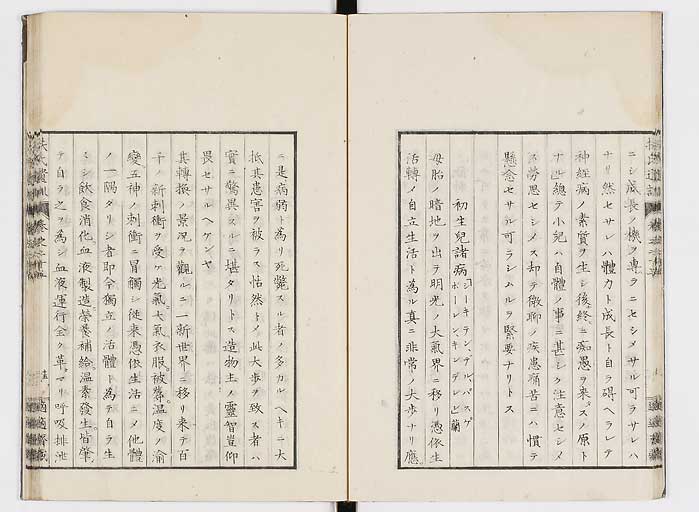 ニシ成長ノ機ヲ專ラニセシメサル可ラサレハ
ナリ然セサレハ體力ト成長ト自ラ碍ヘラレテ
神經病ノ素質ヲ生シ後終ニ痴愚ヲ來スノ原ト
ナル總テ小兒ハ自體ノ事ニ甚シク注意セシメ
ス勞思セシメスノ却テ微聊ノ疾患痛苦ニハ慣テ
懸念セサル可ラシムルヲ緊要ナリトス
初生兒諸病
母胎ノ暗地ヲ出テ明光ノ大氣界ニ移リ憑依生
活轉メ自立生活ト為ル真ニ非常ノ大歩ナリ應
ニ是病弱ト為リ死斃スル者ノ多カルヘキニ大
抵其患害ヲ被ラス怙然トメ此大歩ヲ致ス者ハ
實ニ驚異スルニ堪タリトス造物主ノ靈智豈仰
畏セサルヘケンヤ
其轉換ノ景況ヲ觀ルニ一新世界ニ移リ来テ百
千ノ新刺衝ヲ受ケ光氣大氣衣服被蓐温度ノ渝
變五神ノ刺衝ニ冒觸シ従来憑依生活ニメ他體
ノ一隅タリシ者即今獨立ノ活體ト為テ自ラ生
シ飲食消化血液製造榮養補給温素發生皆肇
テ自ラ之ヲ為シ血液運行全ク革マリ呼吸排泄